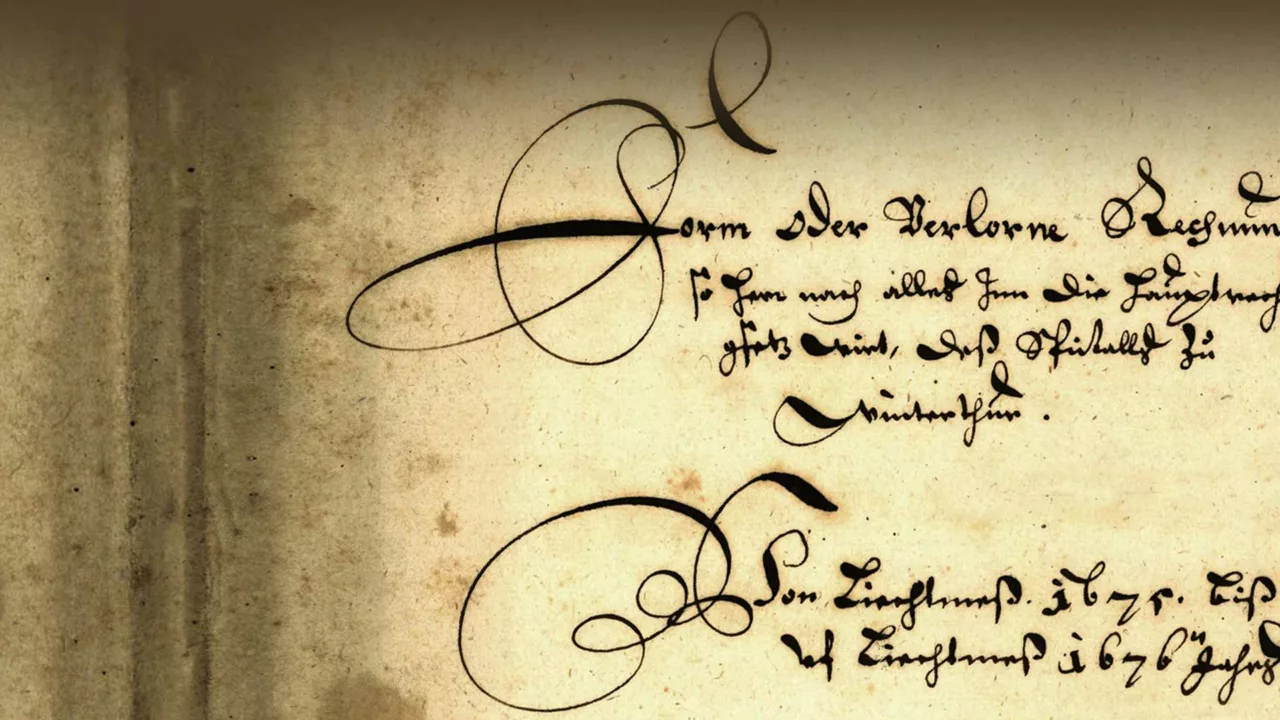 Form Oder Verlorne Rechnun
so hern nach alles Inn die haupt rech
gsetz wirt, deß Spitalls zů
Winterthur.
Von Liechtmeß 1675. biß
uf Liechtmeß 1676 Jahrs